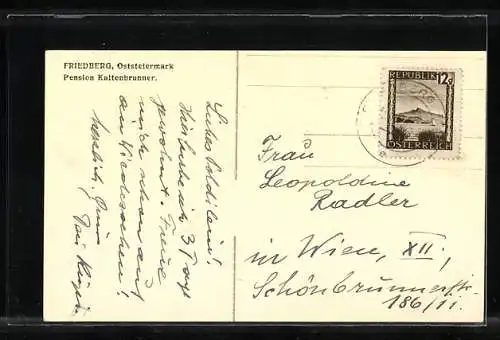 FRIEDBERG, Oststeiermark
Pension Kaltenbrunner.
Liebes Poldilein!
3 Tage
gewohnt. Freue
mich schon auf
ein Wiedersehen!
REPUBLIK 12g
ÖSTERREICH
Frau
Leopoldine
Radler
in Wien, XII.,
Schönbrunnerstr.
186/11.